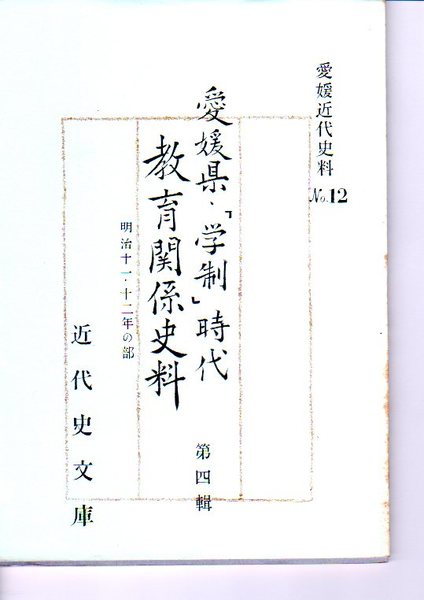 愛媛近代史料 No.12
愛媛県・「学制」時代 第四輯
教育関係史料
明治十一・十二年の部
近代史文庫